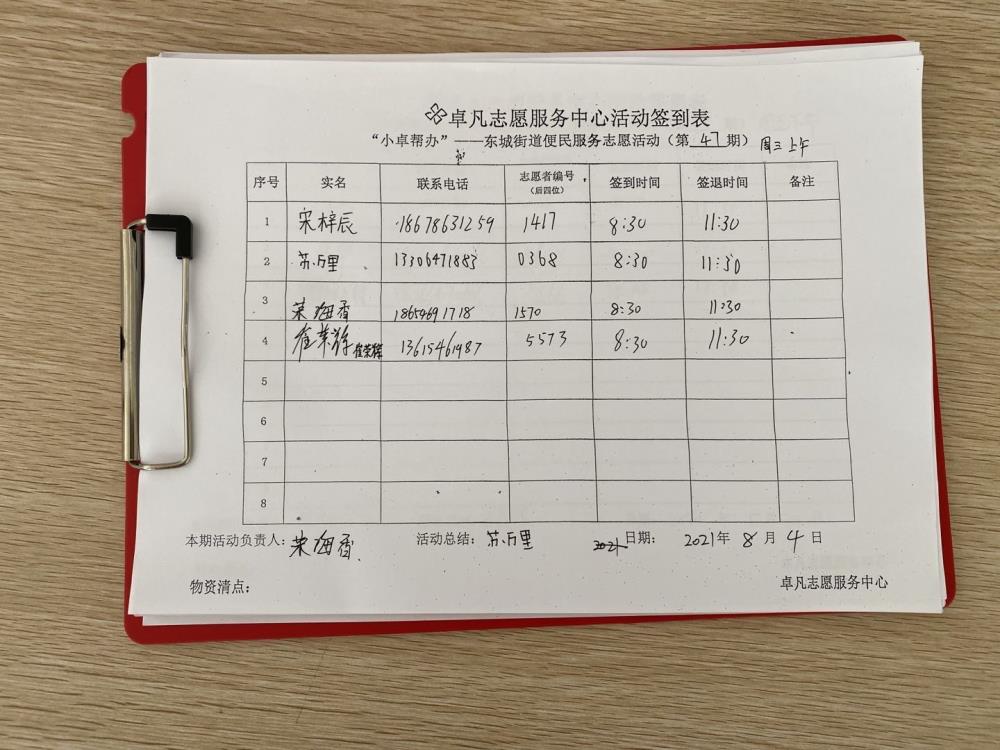 卓凡志愿服务中心活动签到表
“小卓帮办”——东城街道便民服务志愿活动（第 47 期） 周三上午
序号 实名 联系电话 志愿者编号（后四位） 签到时间 签退时间 备注
1 宋梓辰 18678631259 1417 8:30 11:30
2 苏万里 13306471883 0368 8:30 11:30
3 荣海香 18654691718 1570 8:30 11:30
4 崔荣辉 崔荣辉 13615461987 5573 8:30 11:30
5
6
7
8
本期活动负责人：荣海香 活动总结：苏万里 2021 日期： 2021年 8 月 4 日
物资清点： 卓凡志愿服务中心